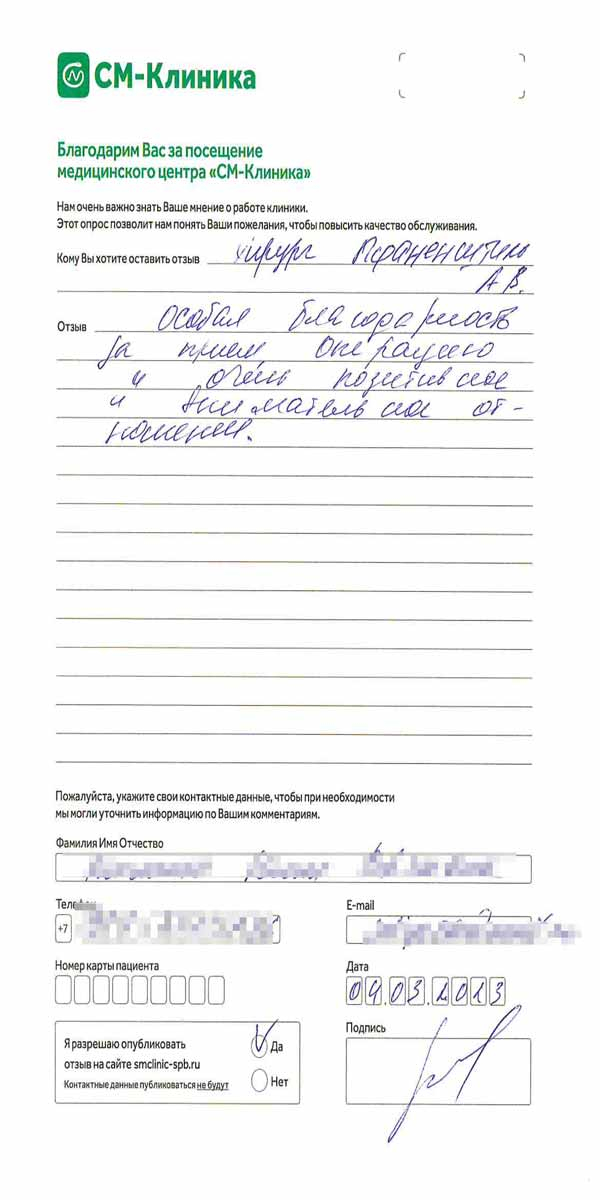 СМ-Клиника
Благодарим Вас за посещение
медицинского центра «СМ-Клиника»
Нам очень важно знать Ваше мнение о работе клиники.
Этот опрос позволит нам понять Ваши пожелания, чтобы повысить качество обслуживания.
Кому Вы хотите оставить отзыв хирург
А В.
Отзыв Особая благодарность
за прием операцию
и очень позитивное
и внимательное от-
ношение.
Пожалуйста, укажите свои контактные данные, чтобы при необходимости
мы могли уточнить информацию по Вашим комментариям.
Фамилия Имя Отчество
Телефон E-mail
+7
Номер карты пациента Дата
04.03.2023
Я разрешаю опубликовать Да Подпись
отзыв на сайте smclinic-spb.ru
Контактные данные публиковаться не будут Нет